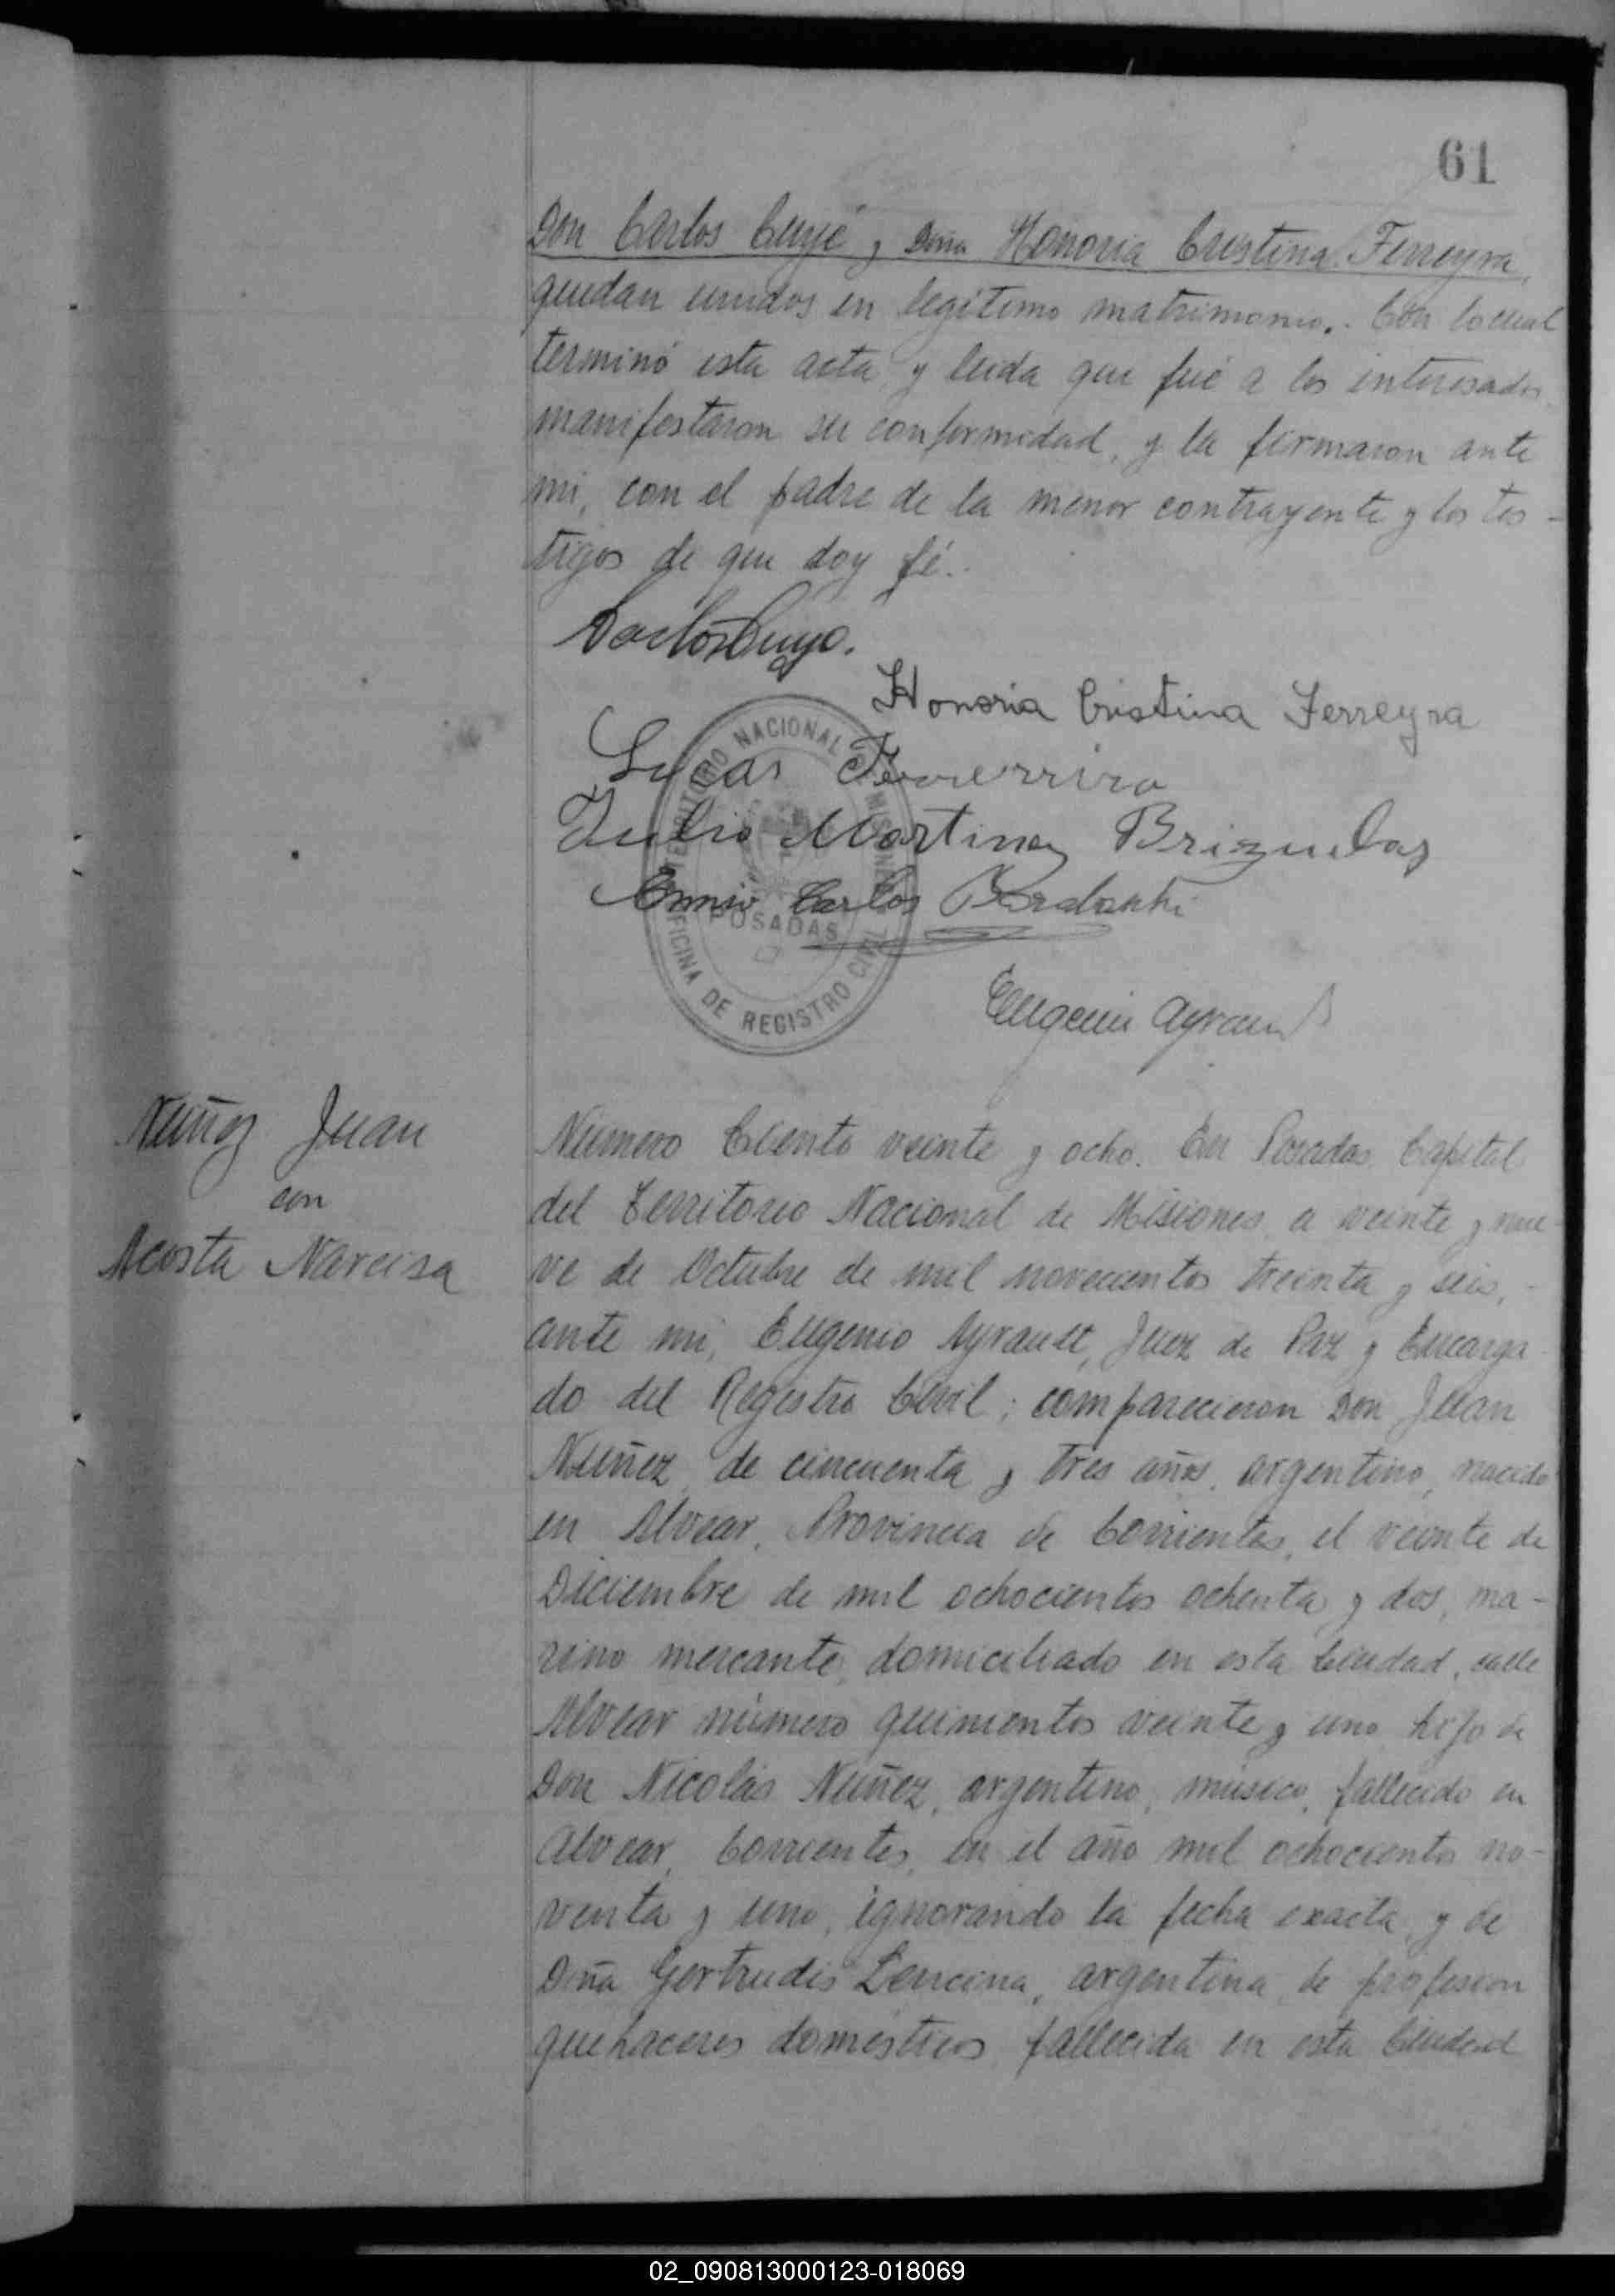 61
Don Carlos Cuyé y Doña Honoria Cristina Ferreyra,
quedan unidos en legítimo matrimonio.. Con lo cual
terminó esta acta, y leida que fué a los interesados
manifestaron su conformidad, y la firmaron ante
mi, con el padre de la menor contrayente y los tes-
tigos de que doy fé..
Honoria Cristina Ferreyra
Lucas
Julio Martinez
Carlos
TERRITORIO NACIONAL DE MISIONES
POSADAS
OFICINA DE REGISTRO CIVIL
Eugenio Ayrault
Nuñez Juan
con
Acosta Narcisa
Número Ciento veinte y ocho. En Posadas Capital
del Territorio Nacional de Misiones, a veinte y nue-
ve de Octubre de mil novecientos treinta y seis,
ante mi, Eugenio Ayrault, Juez de Paz y Encarga-
do del Registro Civil; comparecieron Don Juan
Nuñez, de cincuenta y tres años, argentino, nacido
en Alvear, Provincia de Corrientes, el veinte de
Diciembre de mil ochocientos ochenta y dos, ma-
rino mercante, domiciliado en esta Ciudad, calle
Alvear número quinientos veinte y uno, hijo de
Don Nicolás Nuñez, argentino, músico, fallecido en
Alvear, Corrientes, en el año mil ochocientos no-
venta y uno, ignorando la fecha exacta, y de
Doña Gertrudis Lencina, argentina, de profesion
quehaceres domésticos, fallecida en esta Ciudad
02_090813000123-018069